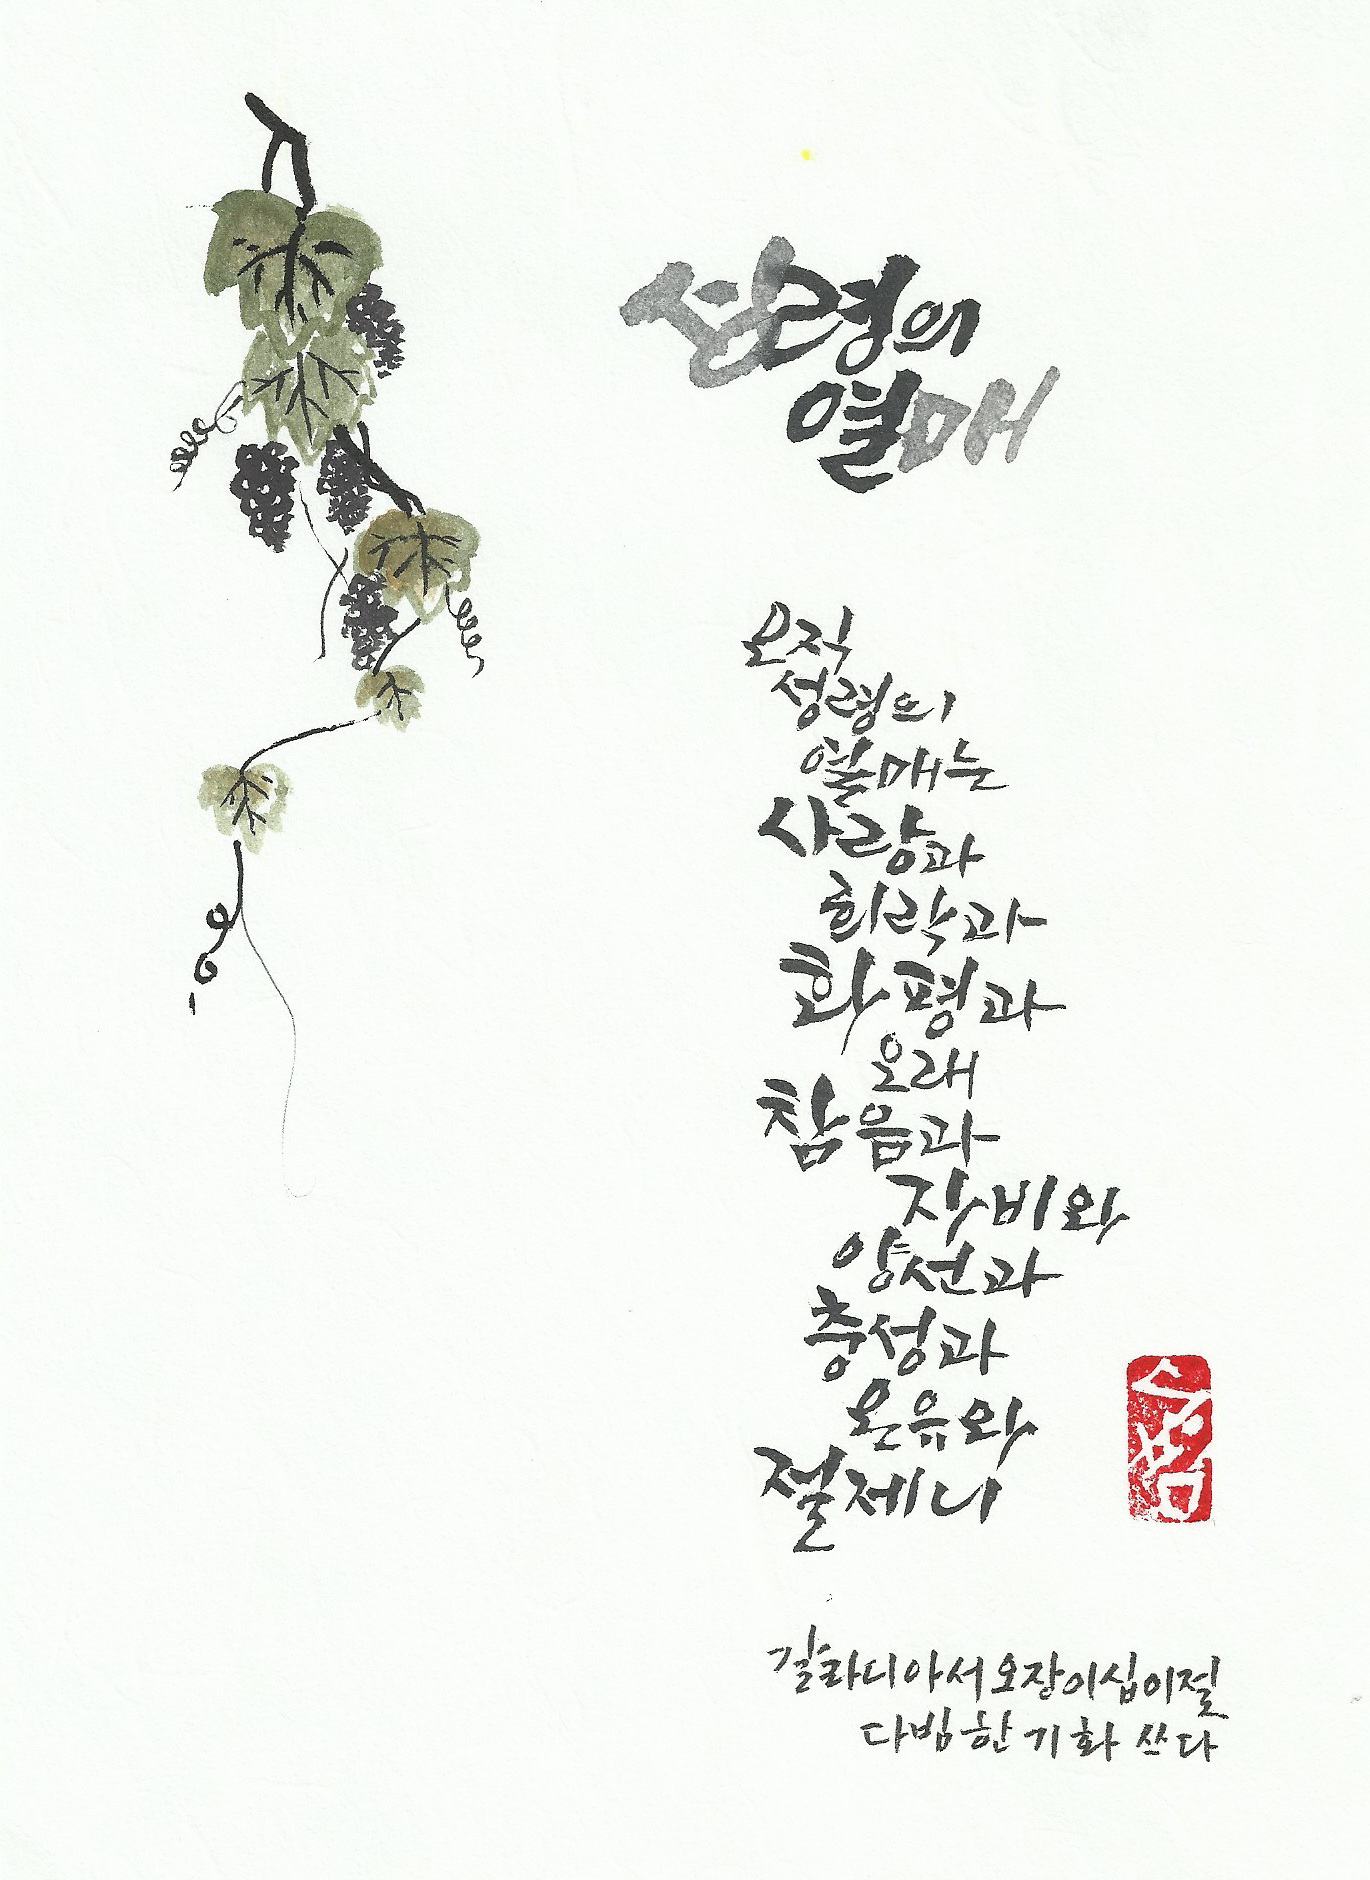 성령의
열매
오직
성령의
열매는
사랑과
희락과
화평과
오래
참음과
자비와
양선과
충성과
온유와
절제니
갈라디아서오장이십이절
다빔한기화쓰다